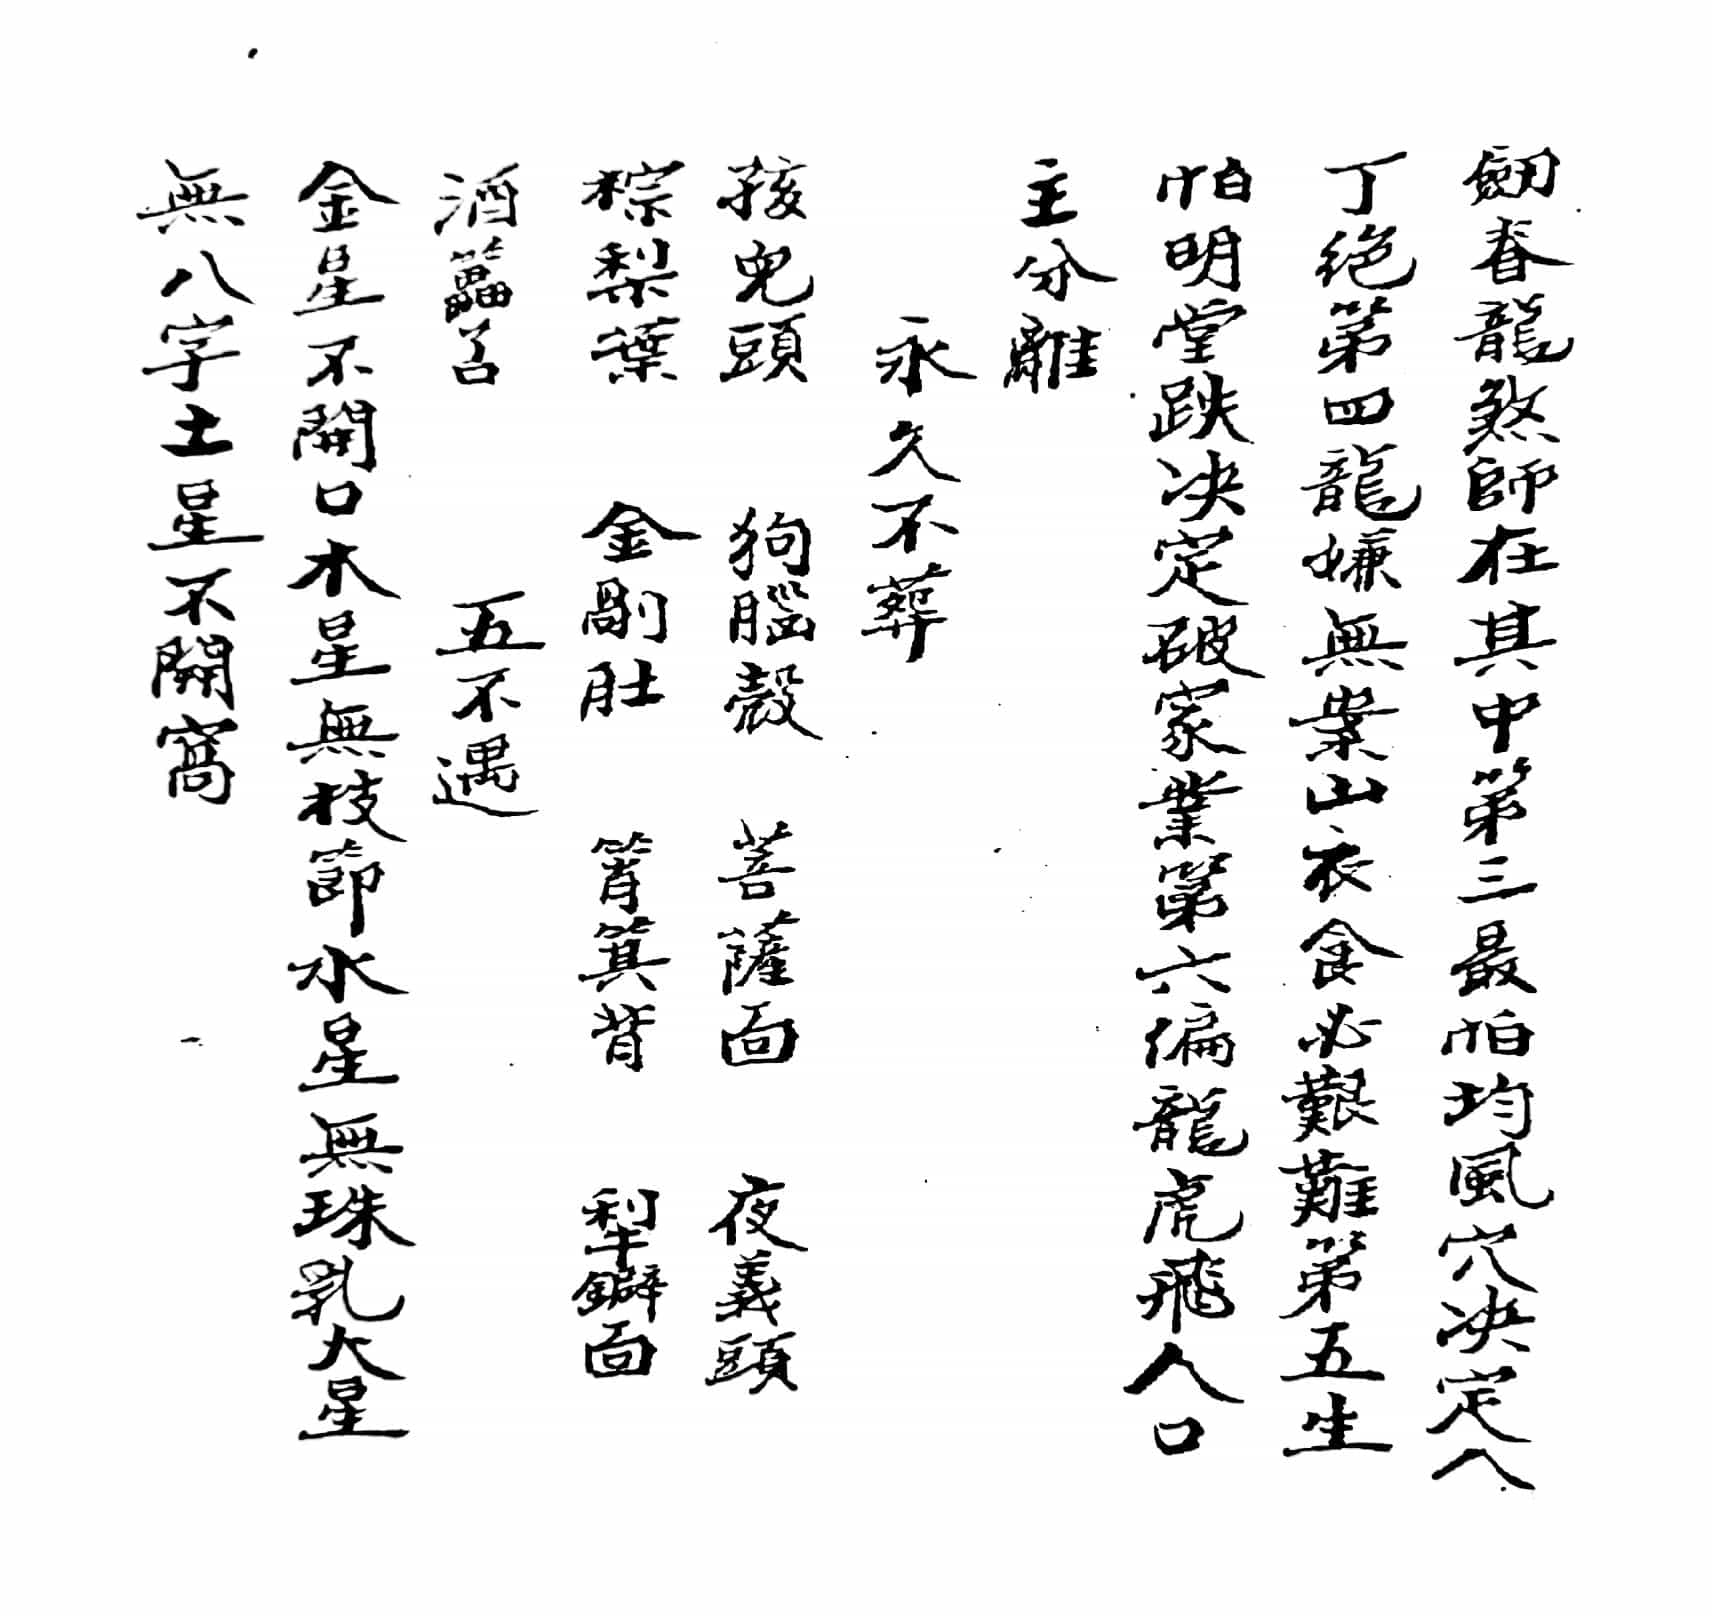 劒春龍煞師在其中第三最怕均風穴决定人
丁绝第四龍嫌無業山衣食必艱難第五生
怕明堂跌决定破家業第六偏龍虎飛人口
主分離
永久不葬
孩兒頭 狗腦殼 菩薩面 夜義頭
棕梨葉 金剛肚 筲箕背 犁鐴面
酒 五不遇
金星不開口木星無枝節水星無珠乳火星
無八字土星不開窩